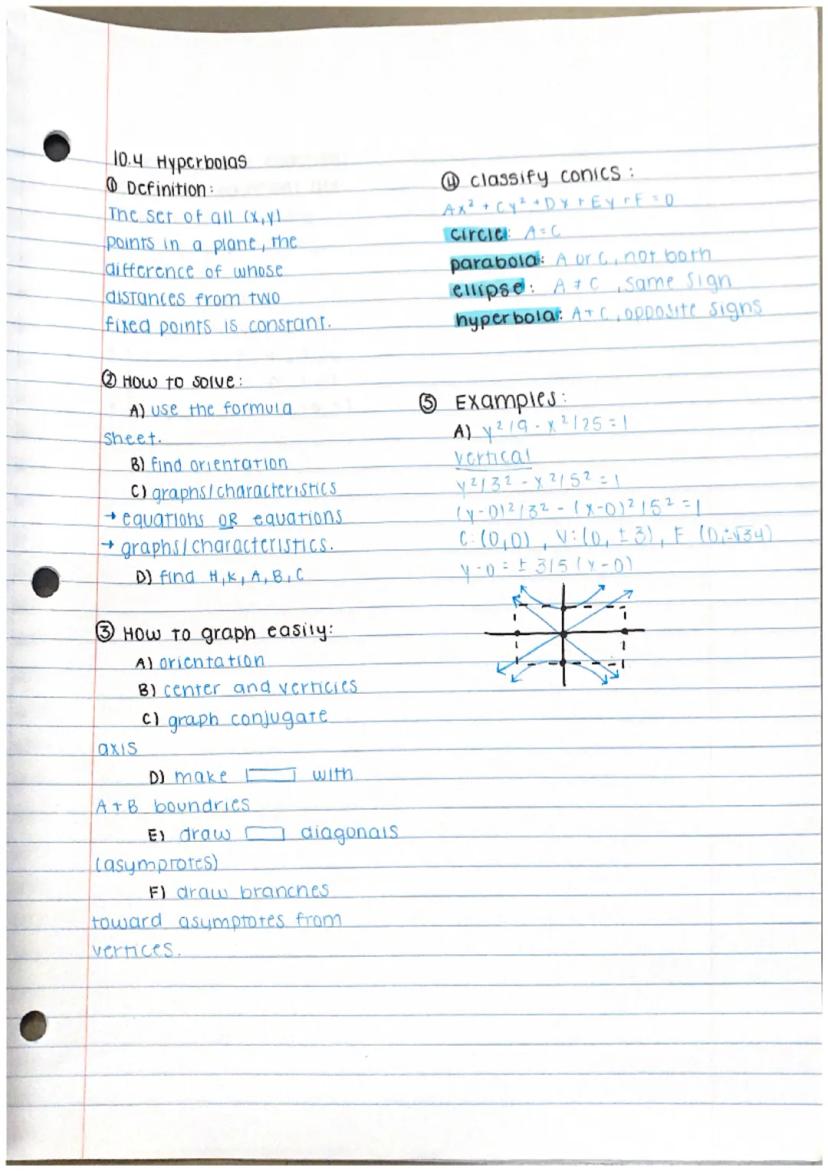 10.4 Hyperbolas
① Definition:
The set of all (x,y)
points in a plane, the
difference of whose
distances from two
fixed points is constant.
② How to solve:
A) use the formula
sheet.
B) find orientation
C) graphs/characteristics
→ equations OR equations
→ graphs/characteristics.
D) find H,K,A,B,C
③ How to graph easily:
A) orientation
B) center and verticies
C) graph conjugate
axis
D) make ▭ with
A+B boundries
E) draw ▭ diagonals
(asymptotes)
F) draw branches
toward asymptotes from
vertices.
④ Classify conics:
Ax² + Cy² + Dx + Ey + F = 0
circle: A=C
parabola: A or C, not both
ellipse: A ≠ C, same sign
hyperbola: A+C, opposite signs
⑤ Examples:
A) y²/9 - x²/25 = 1
vertical
y²/3² - x²/5² = 1
(y-0)²/3² - (x-0)²/5² = 1
C: (0,0), V: (0, ±3), F (0,±√34)
y-0 = ± 3/5 (x-0)